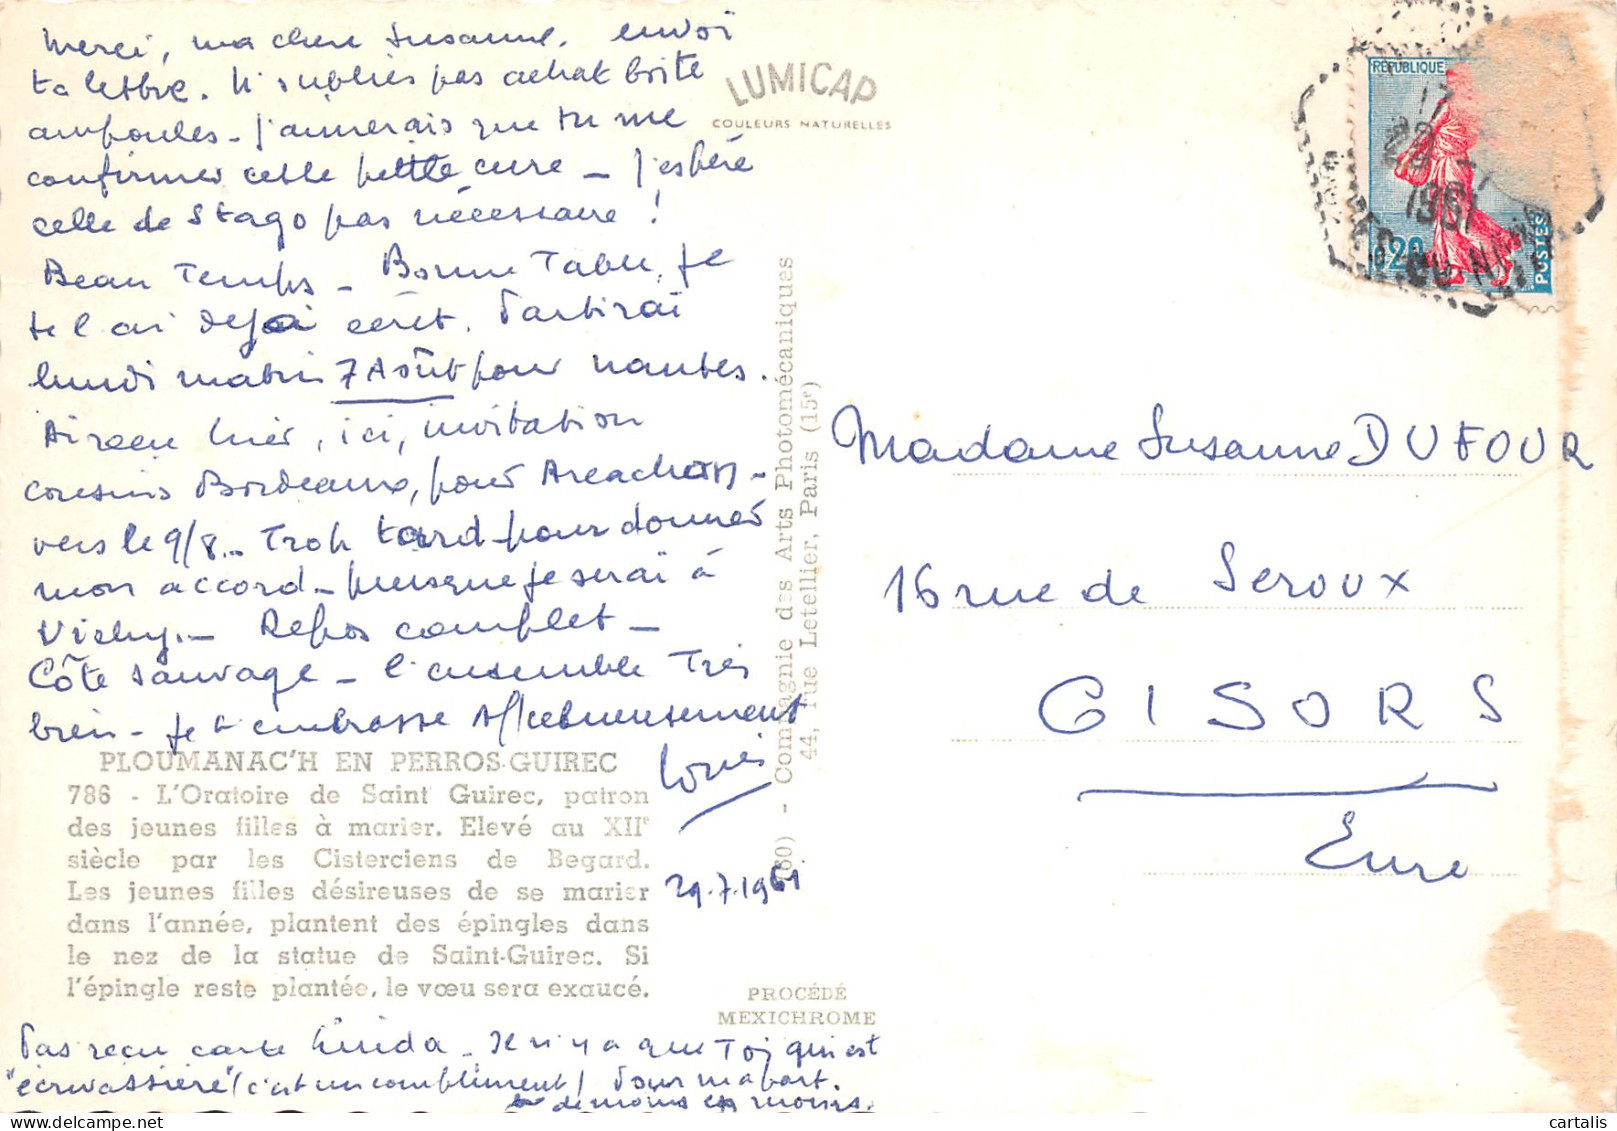 Merci, ma chere Susanne. envoi
ta lettre. N'oublies pas achat boîte
ampoules - J'aimerais que tu me
confirmes cette petite cure - J'espère
celle de Stago pas nécessaire !
Beau Temps - Bonne Table, Je
te l'ai déjà écrit. Partirai
lundi matin 7 Août pour nantes.
Ai reçu hier, ici, invitation
cousins Bordeaux, pour Arcachon -
vers le 9/8 - Trop tard pour donner
mon accord - puisque je serai à
Vichy. - Repos complet -
Côte sauvage - l'ensemble Très
bien - Je t'embrasse Affectueusement
Louis
29.7.1961
PLOUMANAC'H EN PERROS-GUIREC
786 - L'Oratoire de Saint Guirec, patron
des jeunes filles à marier. Elevé au XIIe
siècle par les Cisterciens de Begard.
Les jeunes filles désireuses de se marier
dans l'année, plantent des épingles dans
le nez de la statue de Saint-Guirec. Si
l'épingle reste plantée, le vœu sera exaucé.
Pas reçu carte - Il n'y a que Toi qui est
"écrivassière" (c'est un compliment) Pour ma part.
de moins en moins.
LUMICAP
COULEURS NATURELLES
(60) - Compagnie des Arts Photomécaniques
44, rue Letellier, Paris (15e)
PROCÉDÉ
MEXICHROME
RÉPUBLIQUE
0,20
POSTES
17
29 -7
1961
Madame Susanne DUFOUR
16 rue de Seroux
GISORS
Eure
cartalis